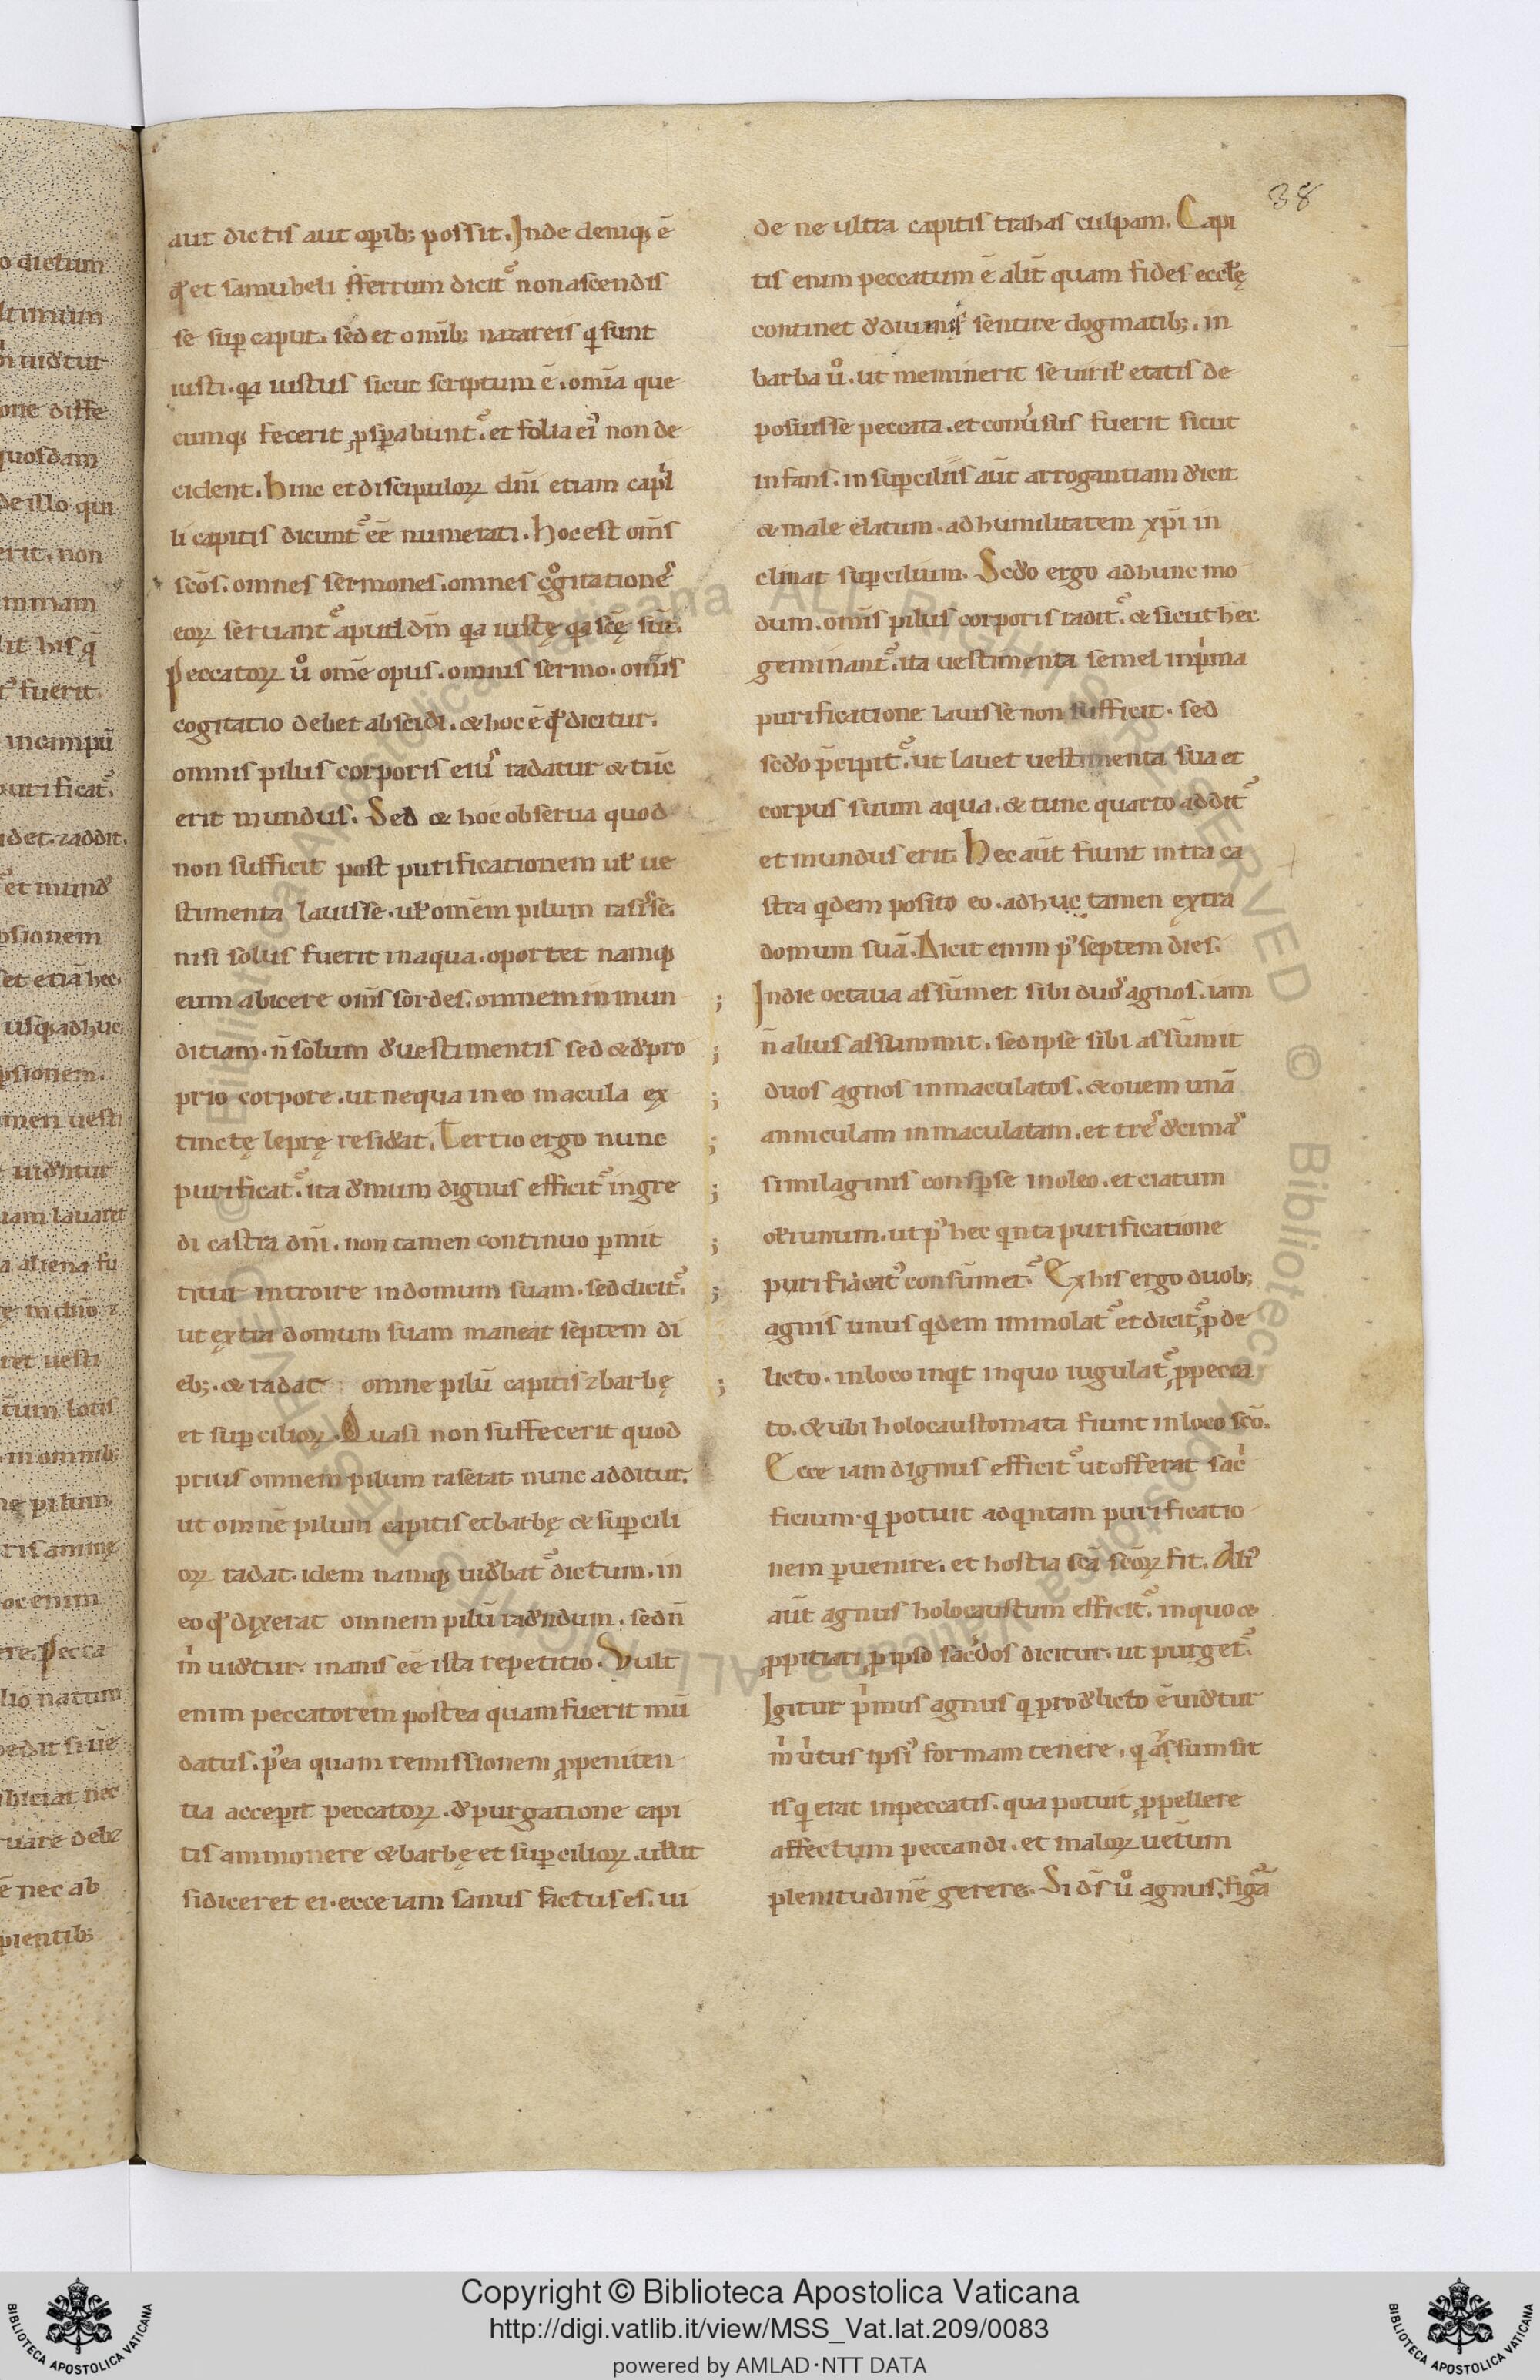 38
aut dictis aut opib; possit. Inde deniq; ē
qd et samuheli ferrum dicit² non ascendis
se sup caput. sed et omib; nazareis q sunt
iusti. qa iustus sicut scriptum ē. omīa que
cumq; fecerit psperabunt². et folia ei² non de
cident. Hinc et discipuloꝝ dn̄i etiam capil
li capitis dicunt² eē numerati. Hoc est om̄s
sc̄os. omnes sermones. omnes cogitatione
eoꝝ seruant² apud dm̄ qa iustę qa sc̄ę sūt.
Peccatoꝝ u̇ om̄e opus. omnis sermo. om̄is
cogitatio debet abscidi. & hoc ē qd dicitur.
omnis pilus corporis eiu² radatur & tūc
erit mundus. Sed & hoc obserua quod
non sufficit post purificationem ul ue
stimenta lauisse. ul om̄em pilum rasisse.
nisi solus fuerit in aqua. oportet namq;
eum abicere om̄s sordes. omnem inmun
ditiam. n̄ solum de uestimentis sed & de pro
prio corpore. ut nequa in eo macula ex
tinctę leprę resideat. Tertio ergo nunc
purificat². ita demum dignus efficit² ingre
di castra dn̄i. non tamen continuo pmit
titur introire in domum suam. sed dicit².
ut extra domum suam maneat septem di
eb;. & radat omne pilū capitis & barbę
et supcilioꝝ. Quasi non suffecerit quod
prius omnem pilum raserat. nunc additur.
ut omnē pilum capitis et barbę & supcili
oꝝ radat. idem namq; uidebat² dictum. in
eo qd dixerat omnem pilū radendum. sed n̄
m uidetur. inanis eē ista repetitio. Vult
enim peccatorem postea quam fuerit mū
datus. p²ea quam remissionem p peniten
tia acceperit peccatoꝝ. de purgatione capi
tis ammonere & barbę et supcilioꝝ. uelut
si diceret ei. ecce iam sanus factus es. ui
de ne ultra capitis trahas culpam. Capi
tis enim peccatum ē alit quam fides ecclę
continet de diuinis sentire dogmatib;. in
barba u̇. ut meminerit se uiril etatis de
posuisse peccata. et conuersus fuerit sicut
infans. in supciliis aūt arrogantiam deicit
& male elatum. ad humilitatem xp̄i in
clinat supcilium. Secdo ergo ad hunc mo
dum. om̄is pilus corporis radit². & sicut hec
geminant². ita uestimenta semel in prima
purificatione lauisse non sufficit. sed
secdo p̄cipit². ut lauet uestimenta sua et
corpus suum aqua. & tunc quarto addit²
et mundus erit. Hec aūt fiunt intra ca
stra qdem posito eo. adhuc tamen extra
domum suā. Dicit enim p² septem dies.
In die octaua assūmet sibi duo² agnos. iam
n̄ alius assummit. sed ipse sibi assūmit
duos agnos inmaculatos. & ouem unā
anniculam inmaculatam. et tre² decima²
similaginis conspse in oleo. et ciatum
olei unum. ut p² hec qnta purificatione
purificat² consūmet². Ex his ergo duob;
agnis unus qdem immolat² et dicit² p de
licto. in loco inqt in quo iugulat² p pecca
to. & ubi holocaustomata fiunt in loco sc̄o.
Ecce iam dignus efficit² ut offerat sac
ficium. q potuit ad qntam purificatio
nem puenire. et hostia sc̄a sc̄oꝝ fit. Ali²
aūt agnus holocaustum efficit². in quo &
ppitiari p ipso sacdos dicitur. ut purget².
Igitur p̄mus agnus q pro delicto ē uidetur
m uirtus ipsi² formam tenere. q assumsit
is q erat in peccatis. qua potuit ppellere
affectum peccandi. et maloꝝ uetum
plenitudinē gerere. Si ds̄ u̇ agnus. figā
Copyright © Biblioteca Apostolica Vaticana
http://digi.vatlib.it/view/MSS_Vat.lat.209/0083
powered by AMLAD·NTT DATA
BIBLIOTECA APOSTOLICA VATICANA
BIBLIOTECA APOSTOLICA VATICANA